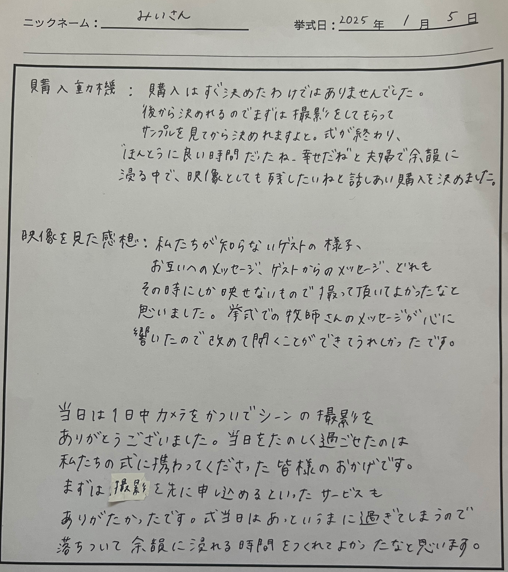 ニックネーム： みいさん 挙式日： 2025 年 1 月 5 日
購入動機： 購入はすぐ決めたわけではありませんでした。
後から決めれるのでまずは撮影をしてもらって
サンプルを見てから決めれますよと。式が終わり、
"ほんとうに良い時間だったね、幸せだね"と夫婦で余韻に
浸る中で、映像としても残したいねと話しあい購入を決めました。
映像を見た感想： 私たちが知らないゲストの様子、
お互いへのメッセージ、ゲストからのメッセージ、どれも
その時にしか映せないもので撮って頂いてよかったなと
思いました。挙式での牧師さんのメッセージが心に
響いたので改めて聞くことができてうれしかったです。
当日は1日中カメラをかついでシーンの撮影を
ありがとうございました。当日をたのしく過ごせたのは
私たちの式に携わってくださった皆様のおかげです。
まずは撮影を先に申し込めるといったサービスも
ありがたかったです。式当日はあっというまに過ぎてしまうので
落ちついて余韻に浸れる時間をつくれてよかったなと思います。